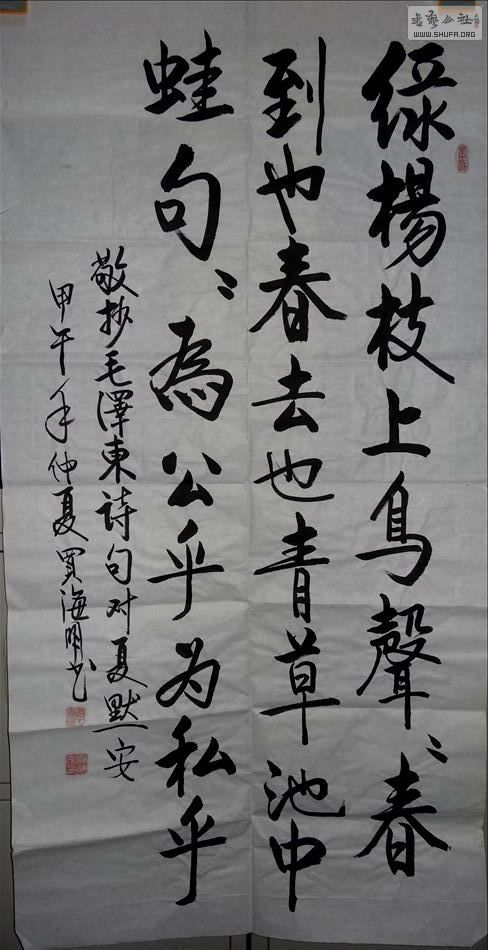 綠楊枝上鳥聲〻春
到也春去也青草池中
蛙句〻為公乎为私乎
敬抄毛澤東詩句对夏默安
甲午年仲夏買海明书
書藝公社
WWW.SHUFA.ORG